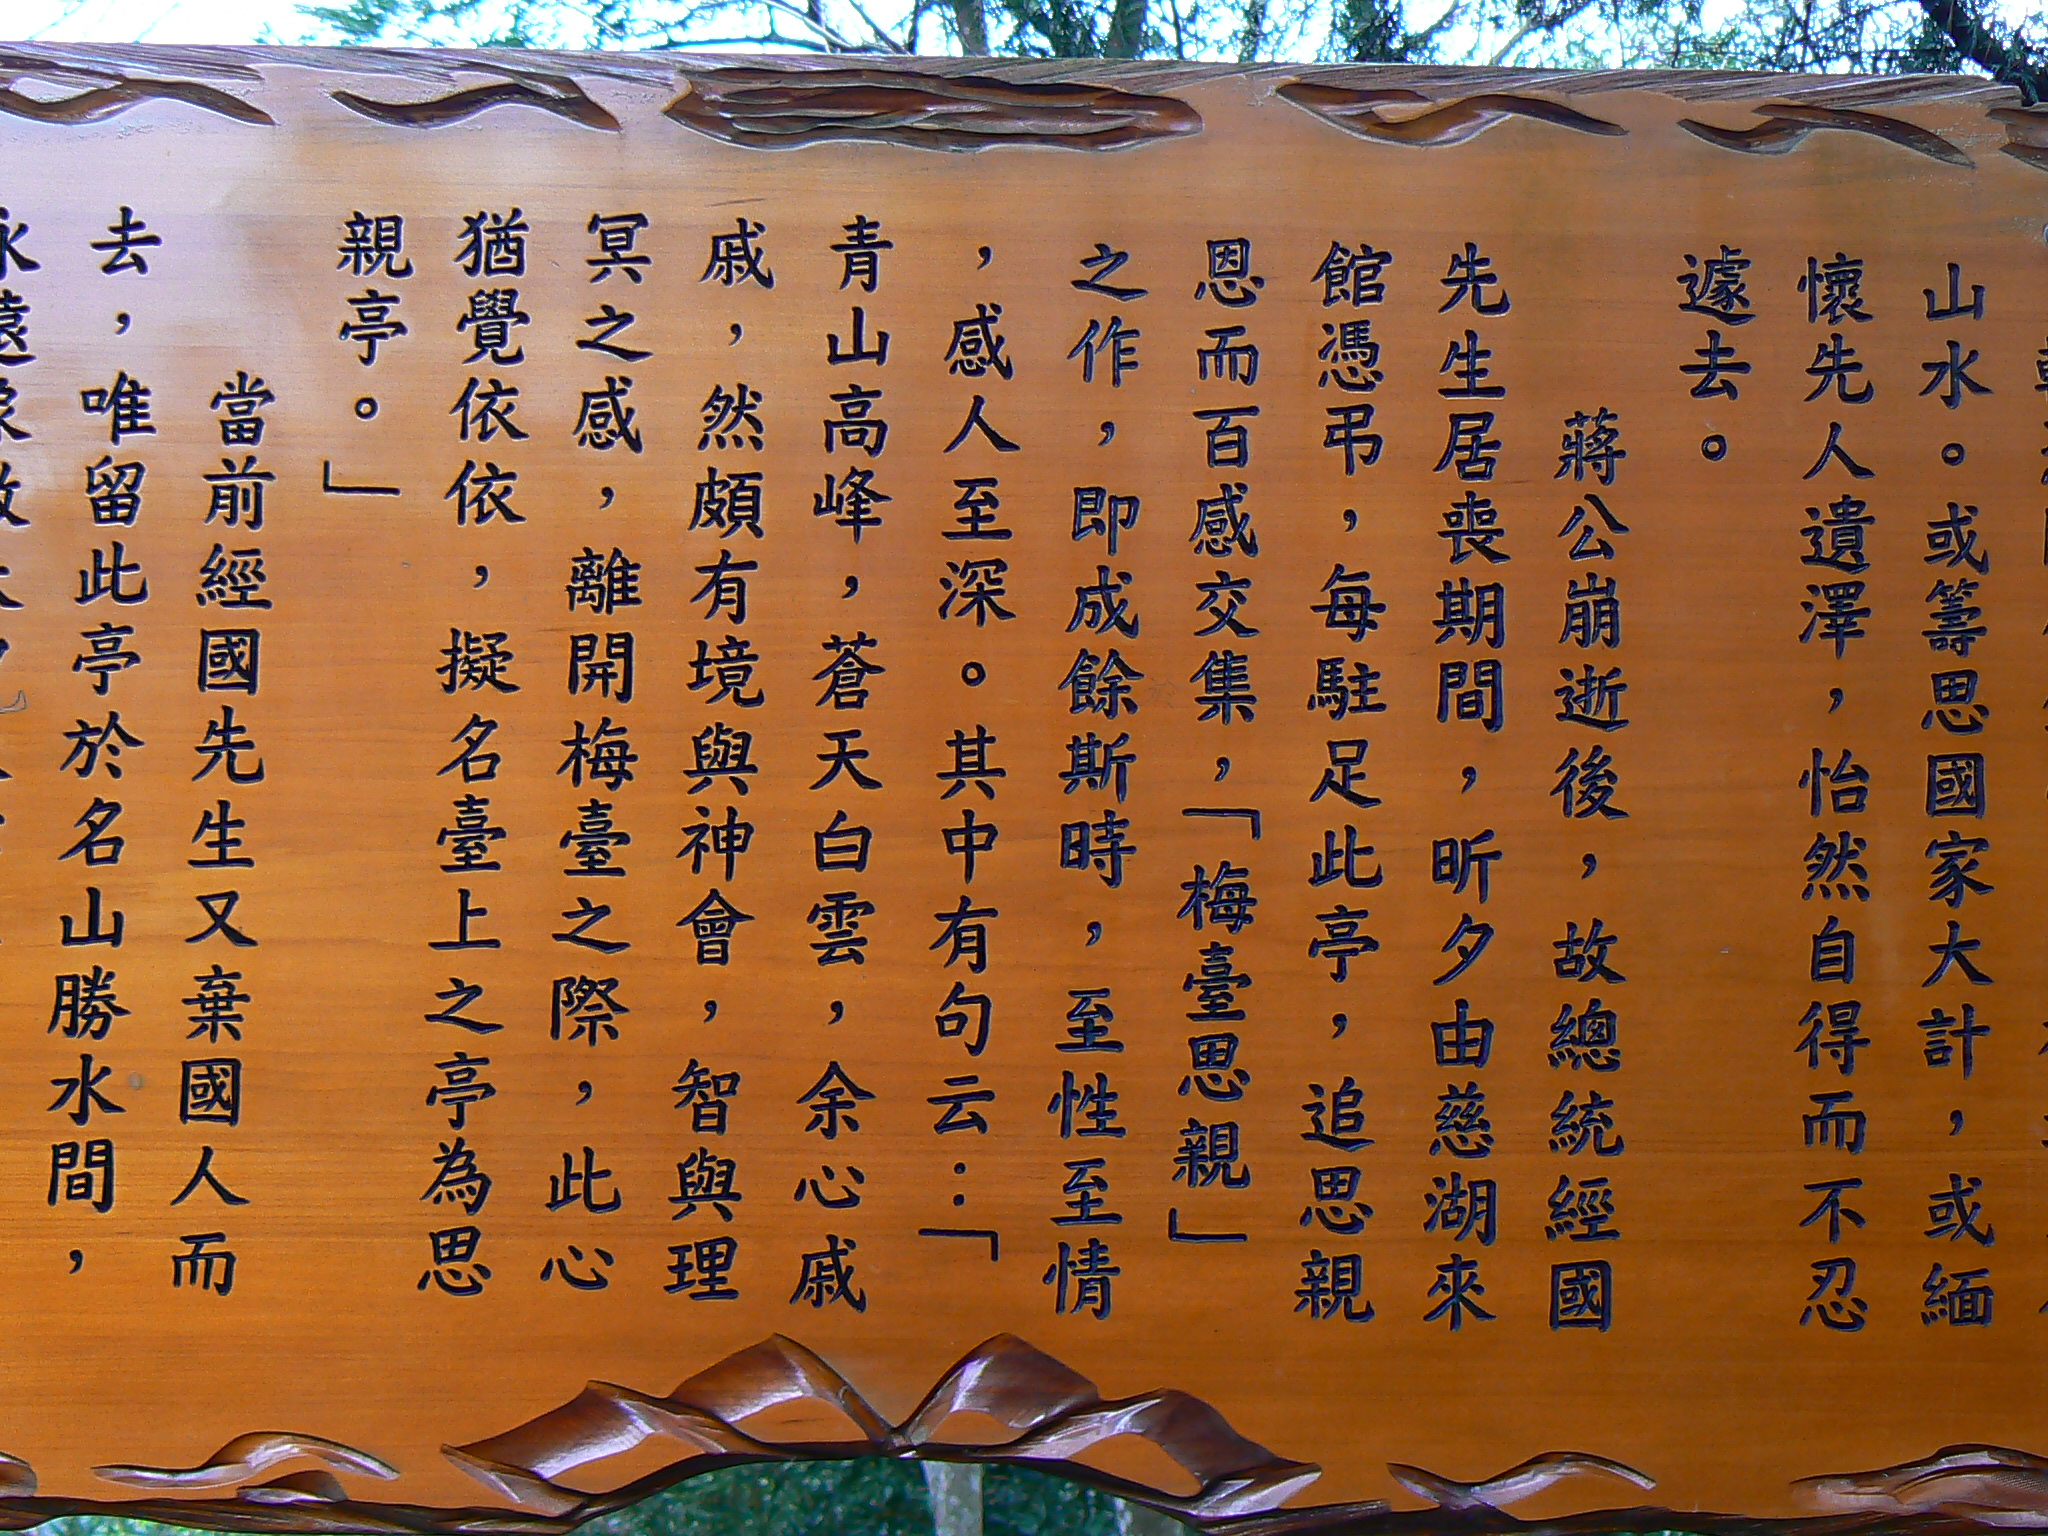 山水。或籌思國家大計，或緬
懷先人遺澤，怡然自得而不忍
遽去。
蔣公崩逝後，故總統經國
先生居喪期間，昕夕由慈湖來
館憑弔，每駐足此亭，追思親
恩而百感交集，「梅臺思親」
之作，即成餘斯時，至性至情
，感人至深。其中有句云：「
青山高峰，蒼天白雲，余心戚
戚，然頗有境與神會，智與理
冥之感，離開梅臺之際，此心
猶覺依依，擬名臺上之亭為思
親亭。」
當前經國先生又棄國人而
去，唯留此亭於名山勝水間，